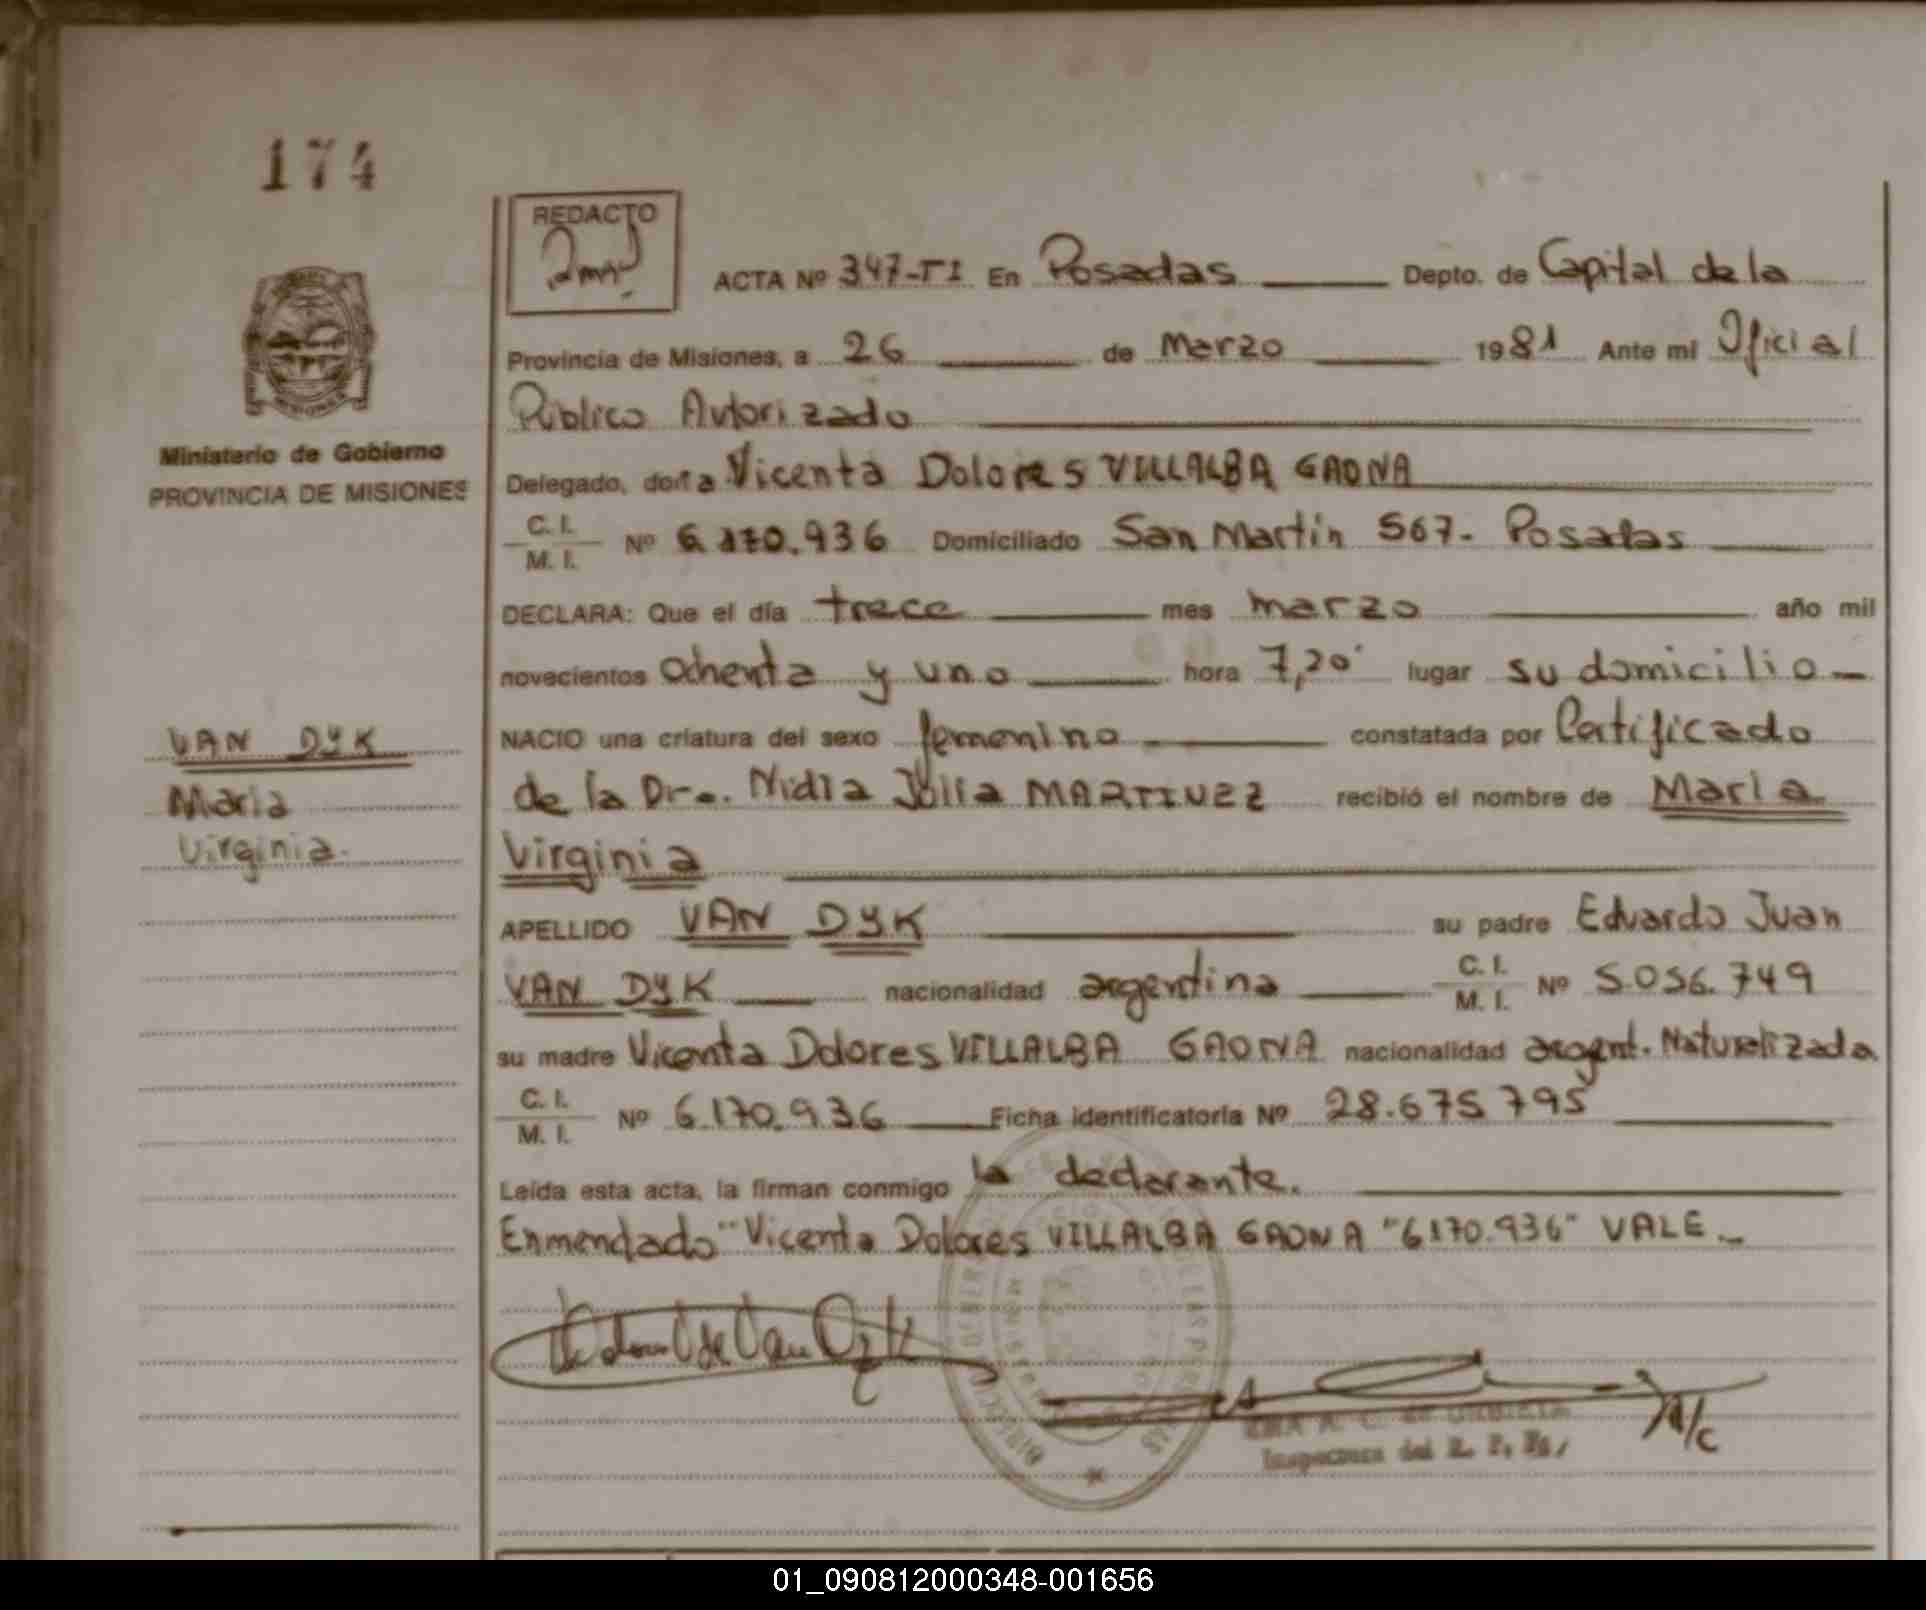 174
REDACTO
ACTA Nº 347-TI En Posadas Depto. de Capital de la
Provincia de Misiones, a 26 de Marzo 1981 Ante mi Oficial
Público Autorizado
Ministerio de Gobierno
PROVINCIA DE MISIONES
Delegado, doña Vicenta Dolores VILLALBA GAONA
C. I.
M. I. Nº 6.170.936 Domiciliado San Martín 567- Posadas
DECLARA: Que el día trece mes marzo año mil
novecientos ochenta y uno hora 7,20' lugar su domicilio
NACIO una criatura del sexo femenino constatada por Certificado
de la Dra. Nidia Julia MARTINEZ recibió el nombre de María
Virginia
VAN DYK
María
Virginia.
APELLIDO VAN DYK su padre Eduardo Juan
VAN DYK nacionalidad argentina C. I. M. I. Nº 5.056.749
su madre Vicenta Dolores VILLALBA GAONA nacionalidad argent. Naturalizada
C. I.
M. I. Nº 6.170.936 Ficha identificatoria Nº 28.675.795
Leída esta acta, la firman conmigo la declarante.
Enmendado "Vicenta Dolores VILLALBA GAONA "6170.936" VALE
Inspectora del R. P.
01_090812000348-001656